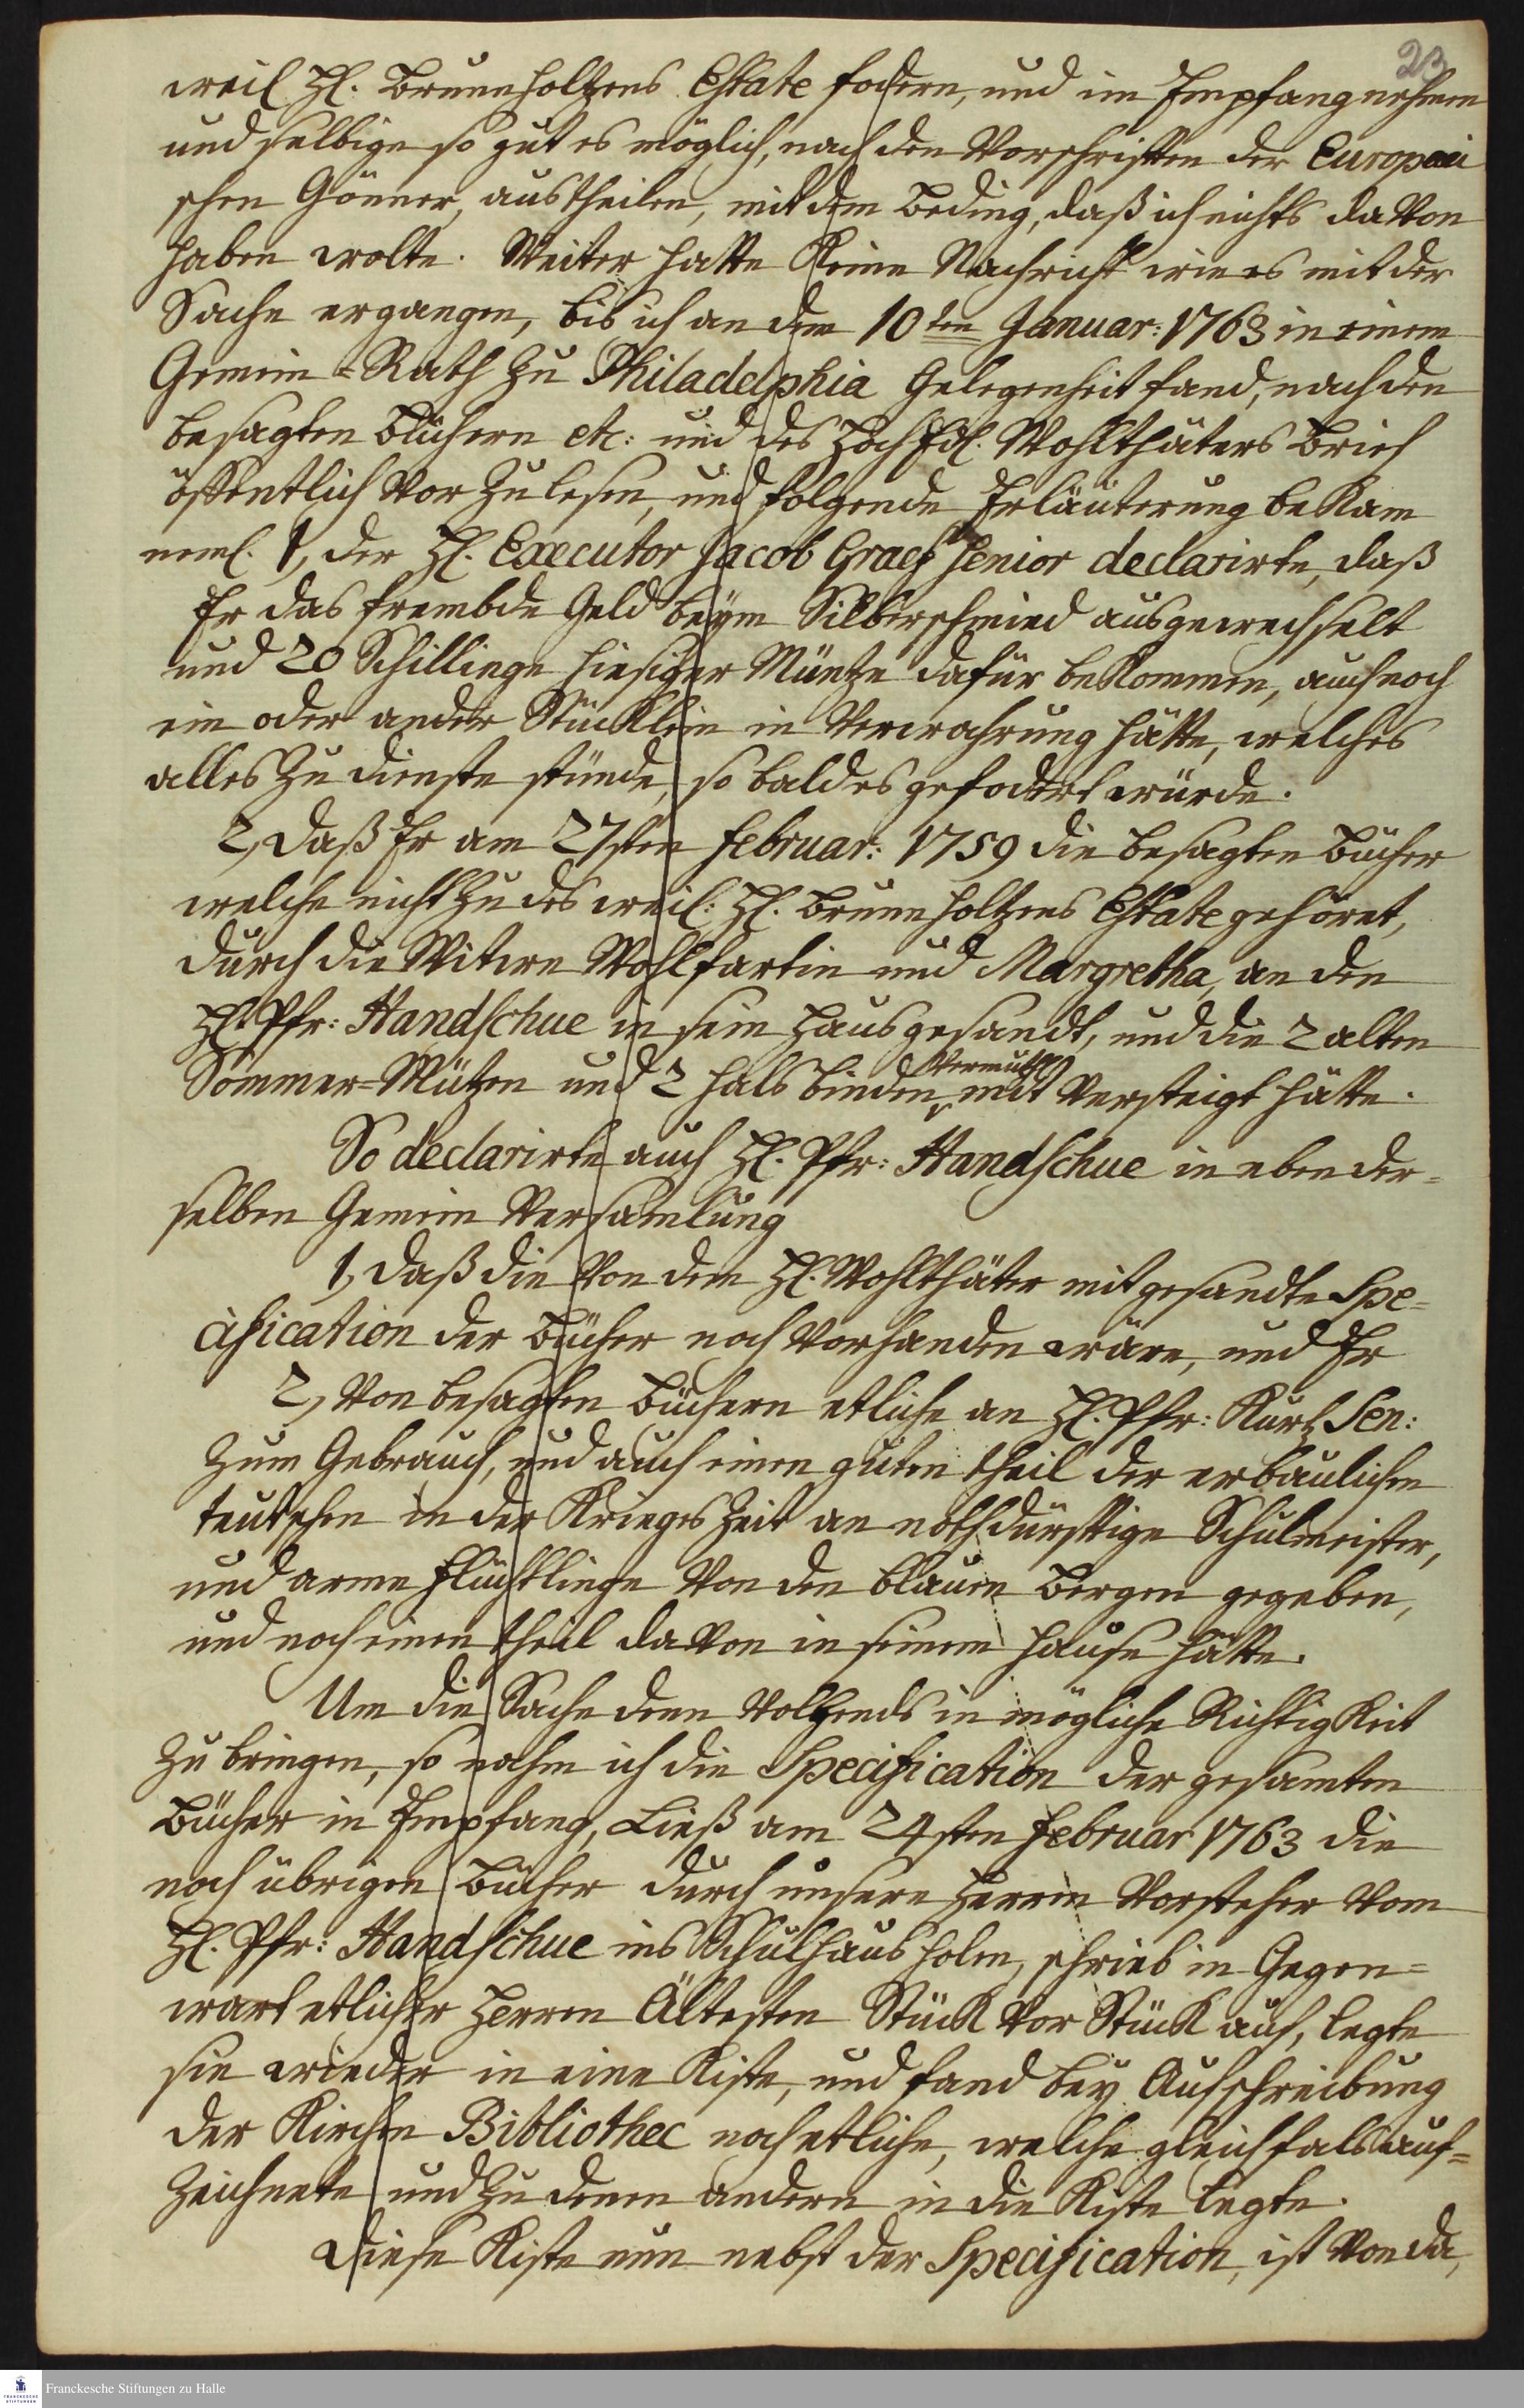 23
weil H. Brunnholtzens Estate fodern, und in Empfang nehmen
und selbige so gut es möglich, nach den Vorschrifften der Europaei
schen Gönner, austheilen, mit dem Beding, daß ich nichts davon
haben wolte. Weiter hatte keine Nachricht wie es mit der
Sache ergangen, bis ich an dem 10ten Januar: 1763 in einem
Gemein-Rath zu Philadelphia Gelegenheit fand, nach den
besagten Büchern etc: und des HochEdl. Wohlthäters Brief
öffentlich vor zu lesen, und folgende Erläuterung bekam
neml. 1, der H. Executor Jacob Graef Senior declarirte, daß
Er das frembde Geld beÿm Silberschmied ausgewechselt
und 20 Schillinge hiesiger Müntze dafür bekommen, auch noch
ein oder ander Stücklein in Verwahrung hätte, welches
alles zu dienste stünde, so bald es gefodert würde.
2, Daß Er am 27sten Februar: 1759 die besagten Bücher
welche nicht zu des weil: H. Brunnholtzens Estate gehöret,
durch die Witwe Wohlfartin und Margretha, an den
H. Pfr: Handschue in sein Haus gesandt, und die 2 alten
Sommer-Mützen und 2 Hals binden, vermuthl. mit versteigt hätte.
So declarirte auch H. Pfr: Handschue in eben der-
selben Gemein Versamlung
1, Daß die von dem H. Wohlthäter mit gesandte Spe-
cification der Bücher noch vorhanden wäre, und Er
2, von besagten Büchern etliche an H. Pfr: Kurtz Sen:
zum Gebrauch, und auch einen guten theil der erbaulichen
teutschen in der Krieges Zeit an nothdürfftige Schulmeister,
und arme Flüchtlinge von den blauen Bergen gegeben,
und noch einen theil davon in seinem Hause hätte.
Um die Sache denn vollends in mögliche Richtigkeit
zu bringen, so nahm ich die Specification der gesamten
Bücher in Empfang, Ließ am 24sten Februar 1763 die
noch übrigen Bücher durch unsere Herren Vorsteher vom
H. Pfr: Handschue ins Schulhaus holen, schrieb in Gegen-
wart etlicher Herren Ältesten Stück vor Stück auf, legte
sie wieder in eine Kiste, und fand beÿ Aufschreibung
der Kirchen Bibliothec noch etliche, welche gleichfals auf-
zeichnete und zu denen andern in die Kiste legte.
Diese Kiste nun nebst der Specification, ist von da,
FRANCKESCHE STIFTUNGEN
Franckesche Stiftungen zu Halle